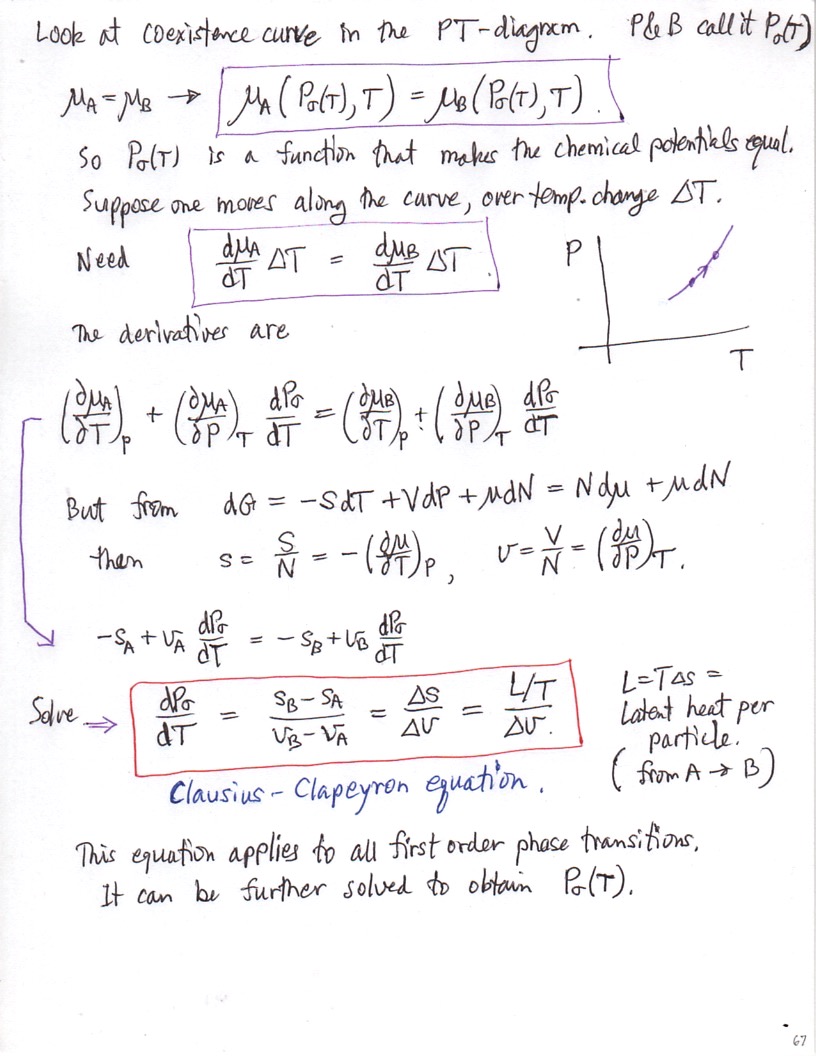 Look at coexistence curve in the PT-diagram. P&B call it Pσ(T)
μA = μB → μA (Pσ(T), T) = μB (Pσ(T), T).
So Pσ(T) is a function that makes the chemical potentials equal.
Suppose one moves along the curve, over temp. change ΔT.
Need dμA/dT ΔT = dμB/dT ΔT.
P
T
The derivatives are
(∂μA/∂T)p + (∂μA/∂P)T dPσ/dT = (∂μB/∂T)p + (∂μB/∂P)T dPσ/dT
But from dG = -SdT + VdP + μdN = Ndμ + μdN
then s = S/N = -(∂μ/∂T)P, v = V/N = (∂μ/∂P)T.
-sA + vA dPσ/dT = -sB + vB dPσ/dT
Solve ⇒ dPσ/dT = (sB - sA)/(vB - vA) = Δs/Δv = (L/T)/Δv.
L = TΔs =
Latent heat per
particle.
(from A → B)
Clausius - Clapeyron equation.
This equation applies to all first order phase transitions.
It can be further solved to obtain Pσ(T).
67